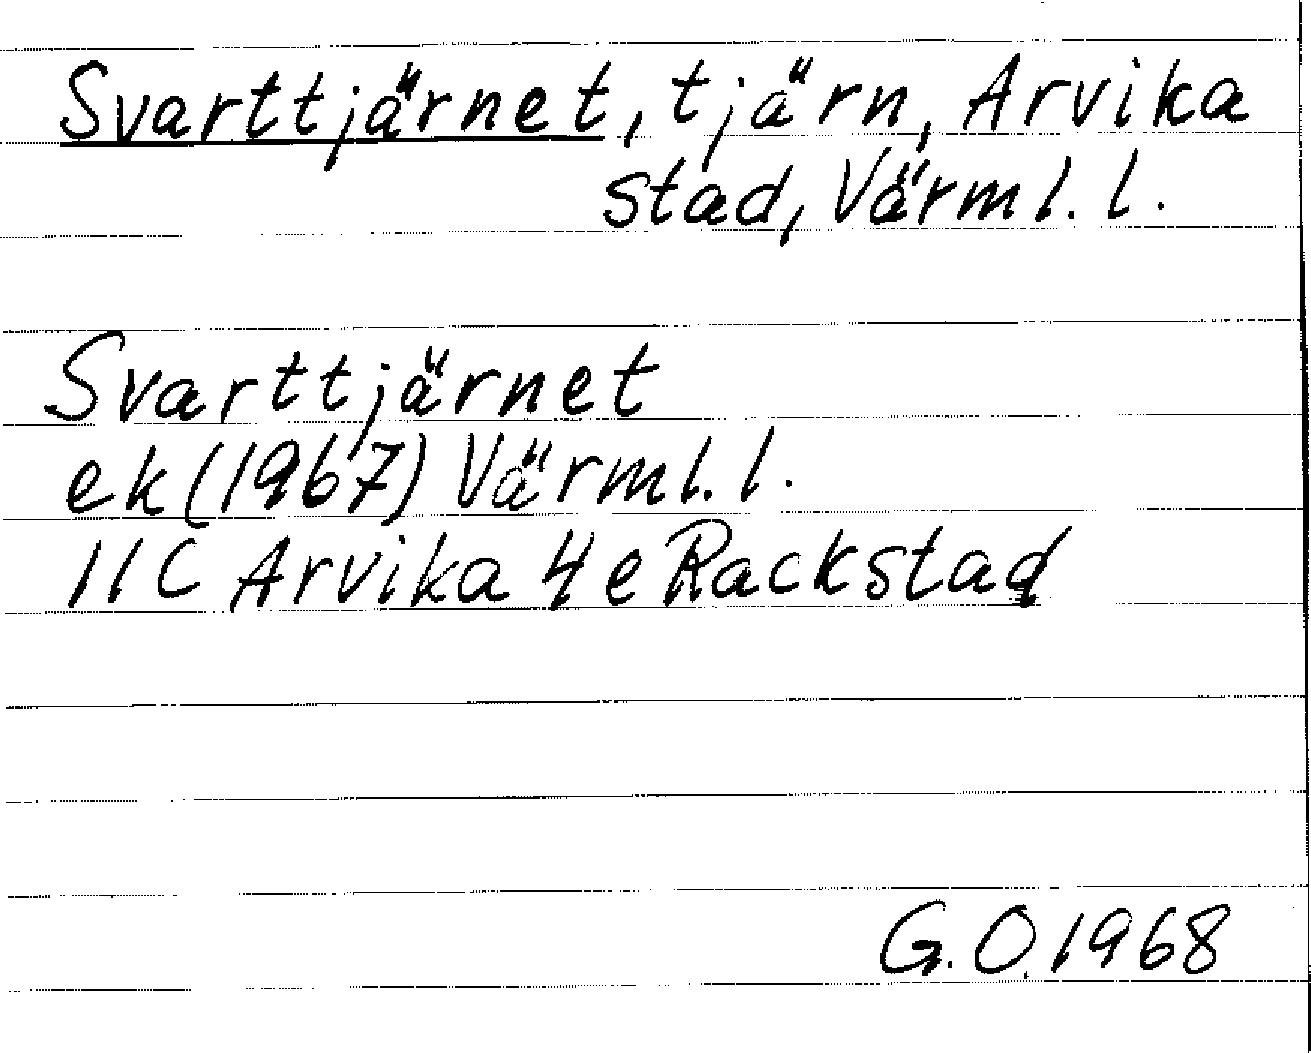 Svarttjärnet, tjärn, Arvika
stad, Värml. l.
Svarttjärnet
ek (1967) Värml. l.
11C Arvika 4e Rackstad
G.O. 1968